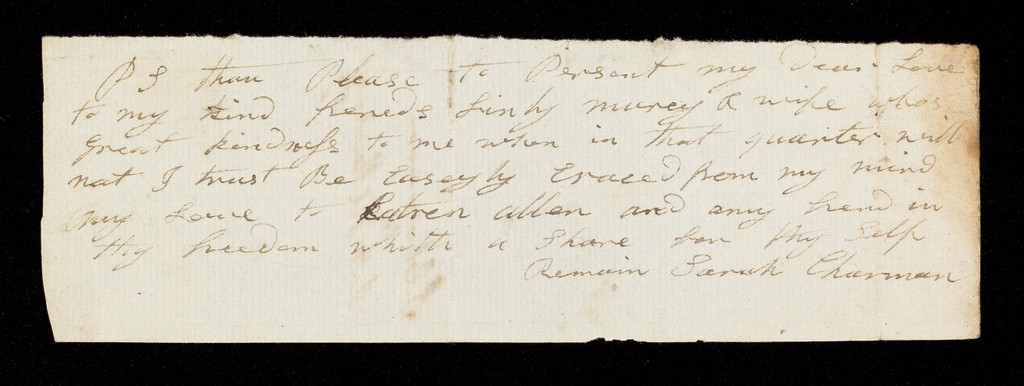 P S thou Please to Persent my Dear Love
to my kind freneds Linly murey & wife whos
great kindness to me when in that quarter will
nat I trust Be Easeyly Eraced from my mind
my Love to Katren allen and any frend in
thy freedom whith a Share for thy Self
Remain Sarah Charman